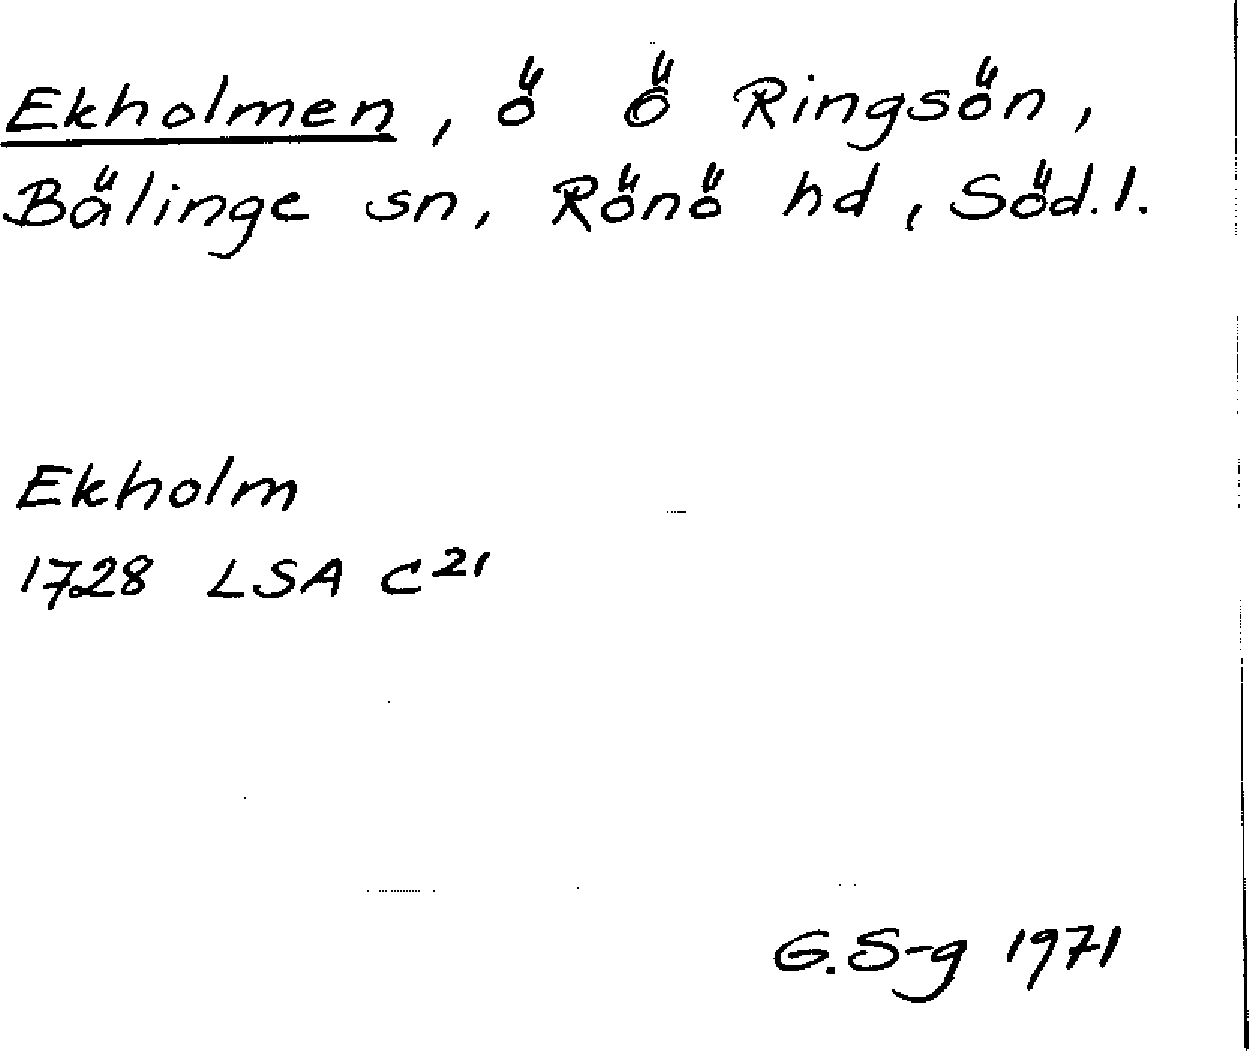 Ekholmen, ö Ö Ringsön,
Bälinge sn, Rönö hd, Söd.l.
Ekholm
1728 LSA C21
G.S-g 1971